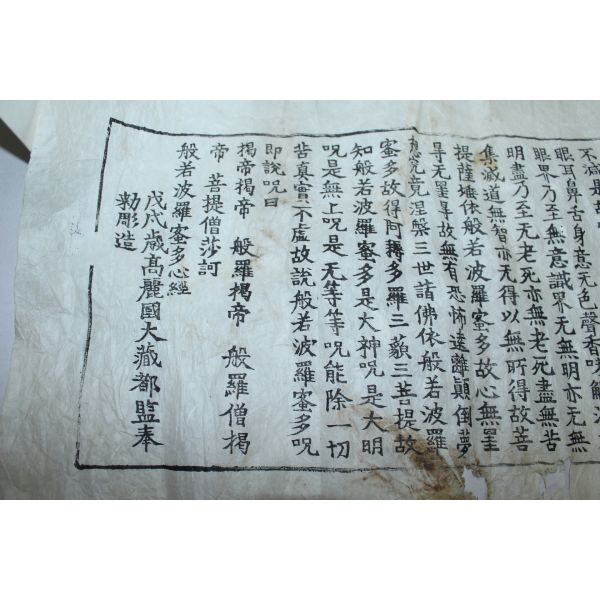 不滅是故
眼耳鼻舌身意无色聲香味觸法
眼界乃至無意識界无無明亦无無
明盡乃至无老死亦無老死盡無苦
集滅道無智亦无得以無所得故菩
提薩埵依般若波羅蜜多故心無罣
㝵无罣㝵故無有恐怖遠離顛倒夢
想究竟涅槃三世諸佛依般若波羅
蜜多故得阿耨多羅三藐三菩提故
知般若波羅蜜多是大神呪是大明
呪是無上呪是无等等呪能除一切
苦真實不虛故說般若波羅蜜多呪
即說呪曰
揭帝揭帝 般羅揭帝 般羅僧揭
帝 菩提僧莎訶
般若波羅蜜多心經
戊戌歲高麗國大藏都監奉
勅彫造